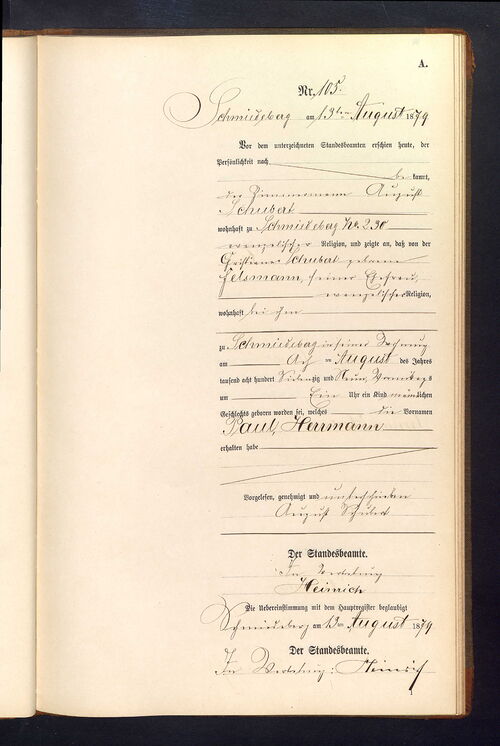 A.
Nr. 105.
Schmiedeberg am 13ten August 1879
Vor dem unterzeichneten Standesbeamten erschien heute, der
Persönlichkeit nach
be kannt,
der Zimmermann August
Schubert
wohnhaft zu Schmiedeberg No. 230
evangelischer Religion, und zeigte an, daß von der
Christiane Schubert geborene
Felsmann, seiner Ehefrau,
evangelischer Religion,
wohnhaft bei ihm
zu Schmiedeberg in seiner Wohnung
am August des Jahres
tausend acht hundert Siebenzig und Neun Vormittags
um Ein Uhr ein Kind männlichen
Geschlechts geboren worden sei, welches die Vornamen
Paul, Herrmann
erhalten habe
Vorgelesen, genehmigt und unterschrieben
August Schubert
Der Standesbeamte.
In Vertretung
Heinrich
Die Uebereinstimmung mit dem Hauptregister beglaubigt
Schmiedeberg am 13ten August 1879
Der Standesbeamte.
In Vertretung: Heinrich
1